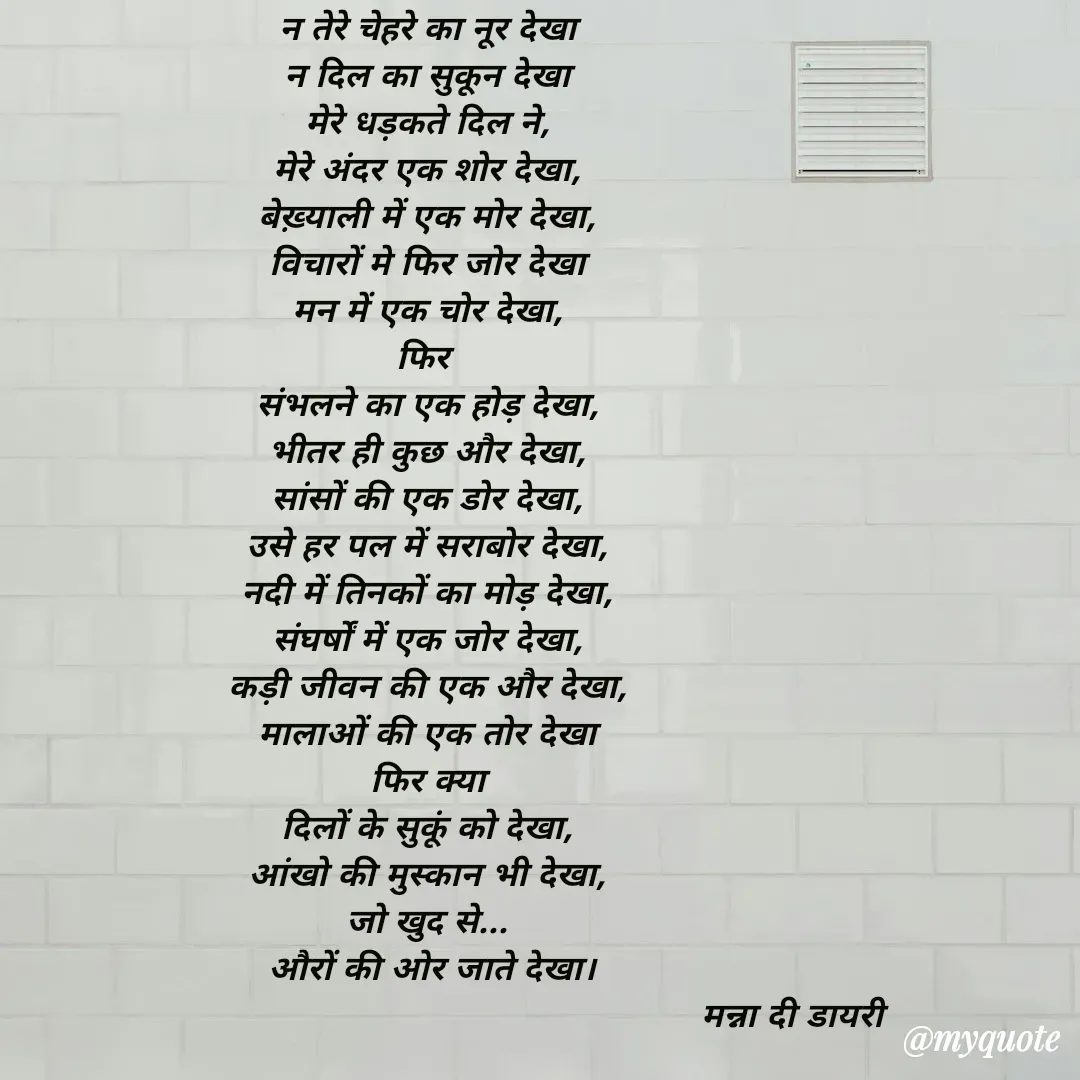 न तेरे चेहरे का नूर देखा
न दिल का सुकून देखा
मेरे धड़कते दिल ने,
मेरे अंदर एक शोर देखा,
बेख़्याली में एक मोर देखा,
विचारों मे फिर जोर देखा
मन में एक चोर देखा,
फिर
संभलने का एक होड़ देखा,
भीतर ही कुछ और देखा,
सांसों की एक डोर देखा,
उसे हर पल में सराबोर देखा,
नदी में तिनकों का मोड़ देखा,
संघर्षों में एक जोर देखा,
कड़ी जीवन की एक और देखा,
मालाओं की एक तोर देखा
फिर क्या
दिलों के सुकूं को देखा,
आंखो की मुस्कान भी देखा,
जो खुद से...
औरों की ओर जाते देखा।
मन्ना दी डायरी
@myquote